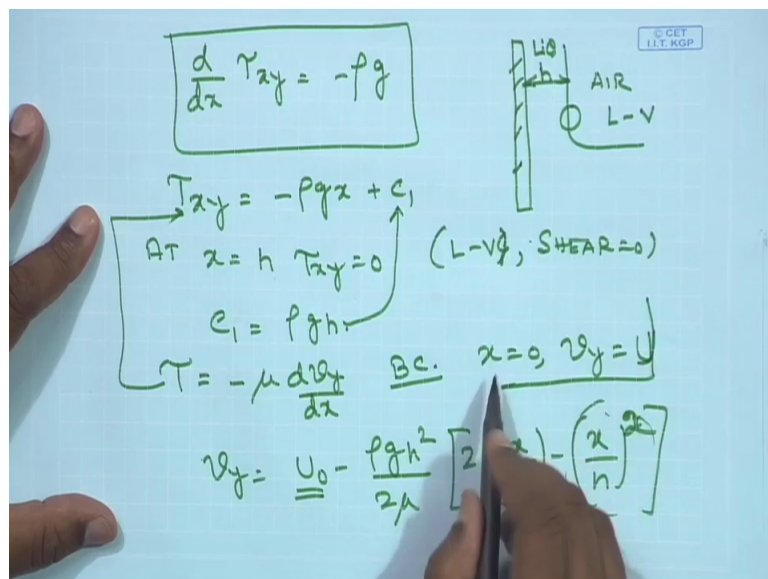 © CET
I.I.T. KGP
d/dx τxy = -ρg
LiQ
h
AIR
L-V
τxy = -ρgx + C1
AT x = h τxy = 0 (L-V, SHEAR=0)
C1 = ρgh
τ = -μ dvy/dx B.C. x=0, vy = U
vy = U0 - ρgh²/2μ [2 x) - (x/h)²]